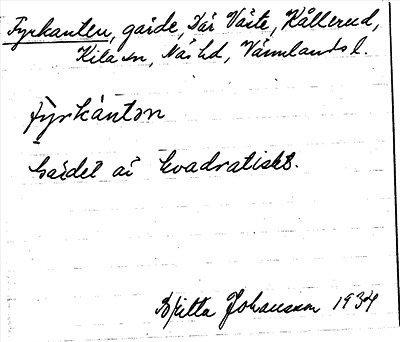 Fyrkanten, gärde, Där Väste, Kållerud,
Kila sn, Näs hd, Värmlands l.
fyrkàntən
Gärdet är kvadratiskt.
Britta Johansson 1934